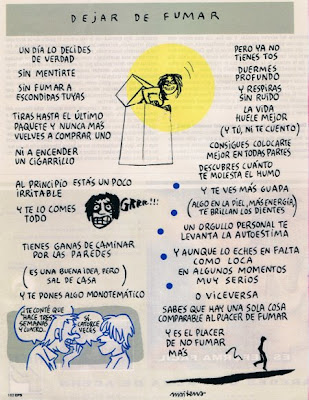 DEJAR DE FUMAR
UN DÍA LO DECIDES
DE VERDAD
SIN MENTIRTE
SIN FUMAR A
ESCONDIDAS TUYAS
TIRAS HASTA EL ÚLTIMO
PAQUETE Y NUNCA MAS
VUELVES A COMPRAR UNO
NI A ENCENDER
UN CIGARRILLO
AL PRINCIPIO ESTÁS UN POCO
IRRITABLE
GRRR!!!
Y TE LO COMES
TODO
TIENES GANAS DE CAMINAR
POR LAS PAREDES
(ES UNA BUENA IDEA, PERO
SAL DE CASA)
Y TE PONES ALGO MONOTEMÁTICO
¿TE CONTÉ QUE
HACE TRES
SEMANAS
Y LO DEJO...
SÍ.
CATORCE
VECES
PERO YA NO
TIENES TOS
DUERMES
PROFUNDO
Y RESPIRAS
SIN RUIDO
LA VIDA
HUELE MEJOR
(Y TÚ, NI TE CUENTO)
CONSIGUES COLOCARTE
MEJOR EN TODAS PARTES
DESCUBRES CUÁNTO
TE MOLESTA EL HUMO
Y TE VES MAS GUAPA
(ALGO EN LA PIEL, MÁS ENERGÍA)
TE BRILLAN LOS DIENTES
UN ORGULLO PERSONAL TE
LEVANTA LA AUTOESTIMA
Y AUNQUE LO ECHES EN FALTA
COMO LOCA
EN ALGUNOS MOMENTOS
MUY SERIOS
O VICEVERSA
SABES QUE HAY UNA SOLA COSA
COMPARABLE AL PLACER DE FUMAR
Y ES EL PLACER
DE NO FUMAR
MAS
maitena